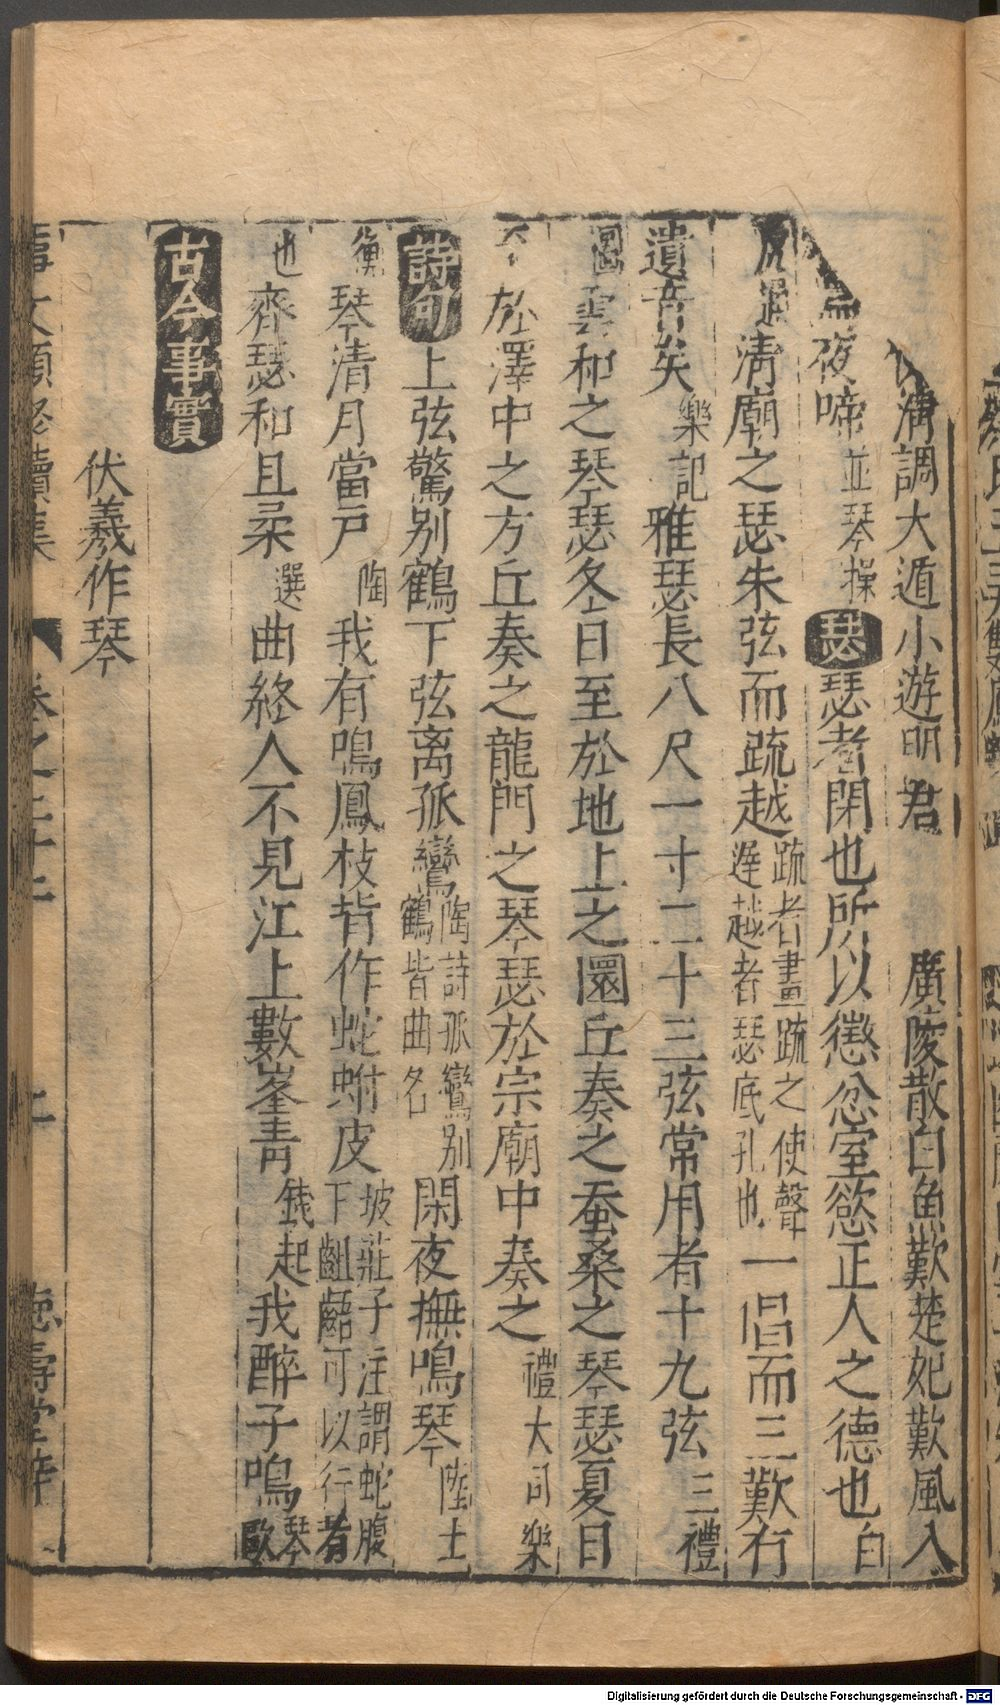 清調大遁小遊明君 廣陵散白魚歎楚妃歎風入
夜啼並琴操 瑟 瑟者閉也所以懲忿窒慾正人之德也白
虎通清廟之瑟朱弦而疏越疏者畫疏之使聲遲越者瑟底孔也一唱而三歎有
遺音矣樂記雅瑟長八尺一寸二十三弦常用者十九弦三禮
圖雲和之琴瑟冬日至於地上之圜丘奏之蚕桑之琴瑟夏日
於澤中之方丘奏之龍門之琴瑟於宗廟中奏之禮大司樂
詩句 上弦驚别鶴下弦离孤鸞陶詩孤鸞别鶴皆曲名閑夜撫鳴琴陸士
衡琴清月當戸陶我有鳴鳳枝背作蛇蚹皮坡莊子注謂蛇腹下齟齬可以行者
也齊瑟和且柔選曲終人不見江上數峯青錢起我醉子鳴琴歐
古今事實
伏羲作琴
事文類聚續集 卷之二十二 二 德壽堂梓
Digitalisierung gefördert durch die Deutsche Forschungsgemeinschaft - DFG